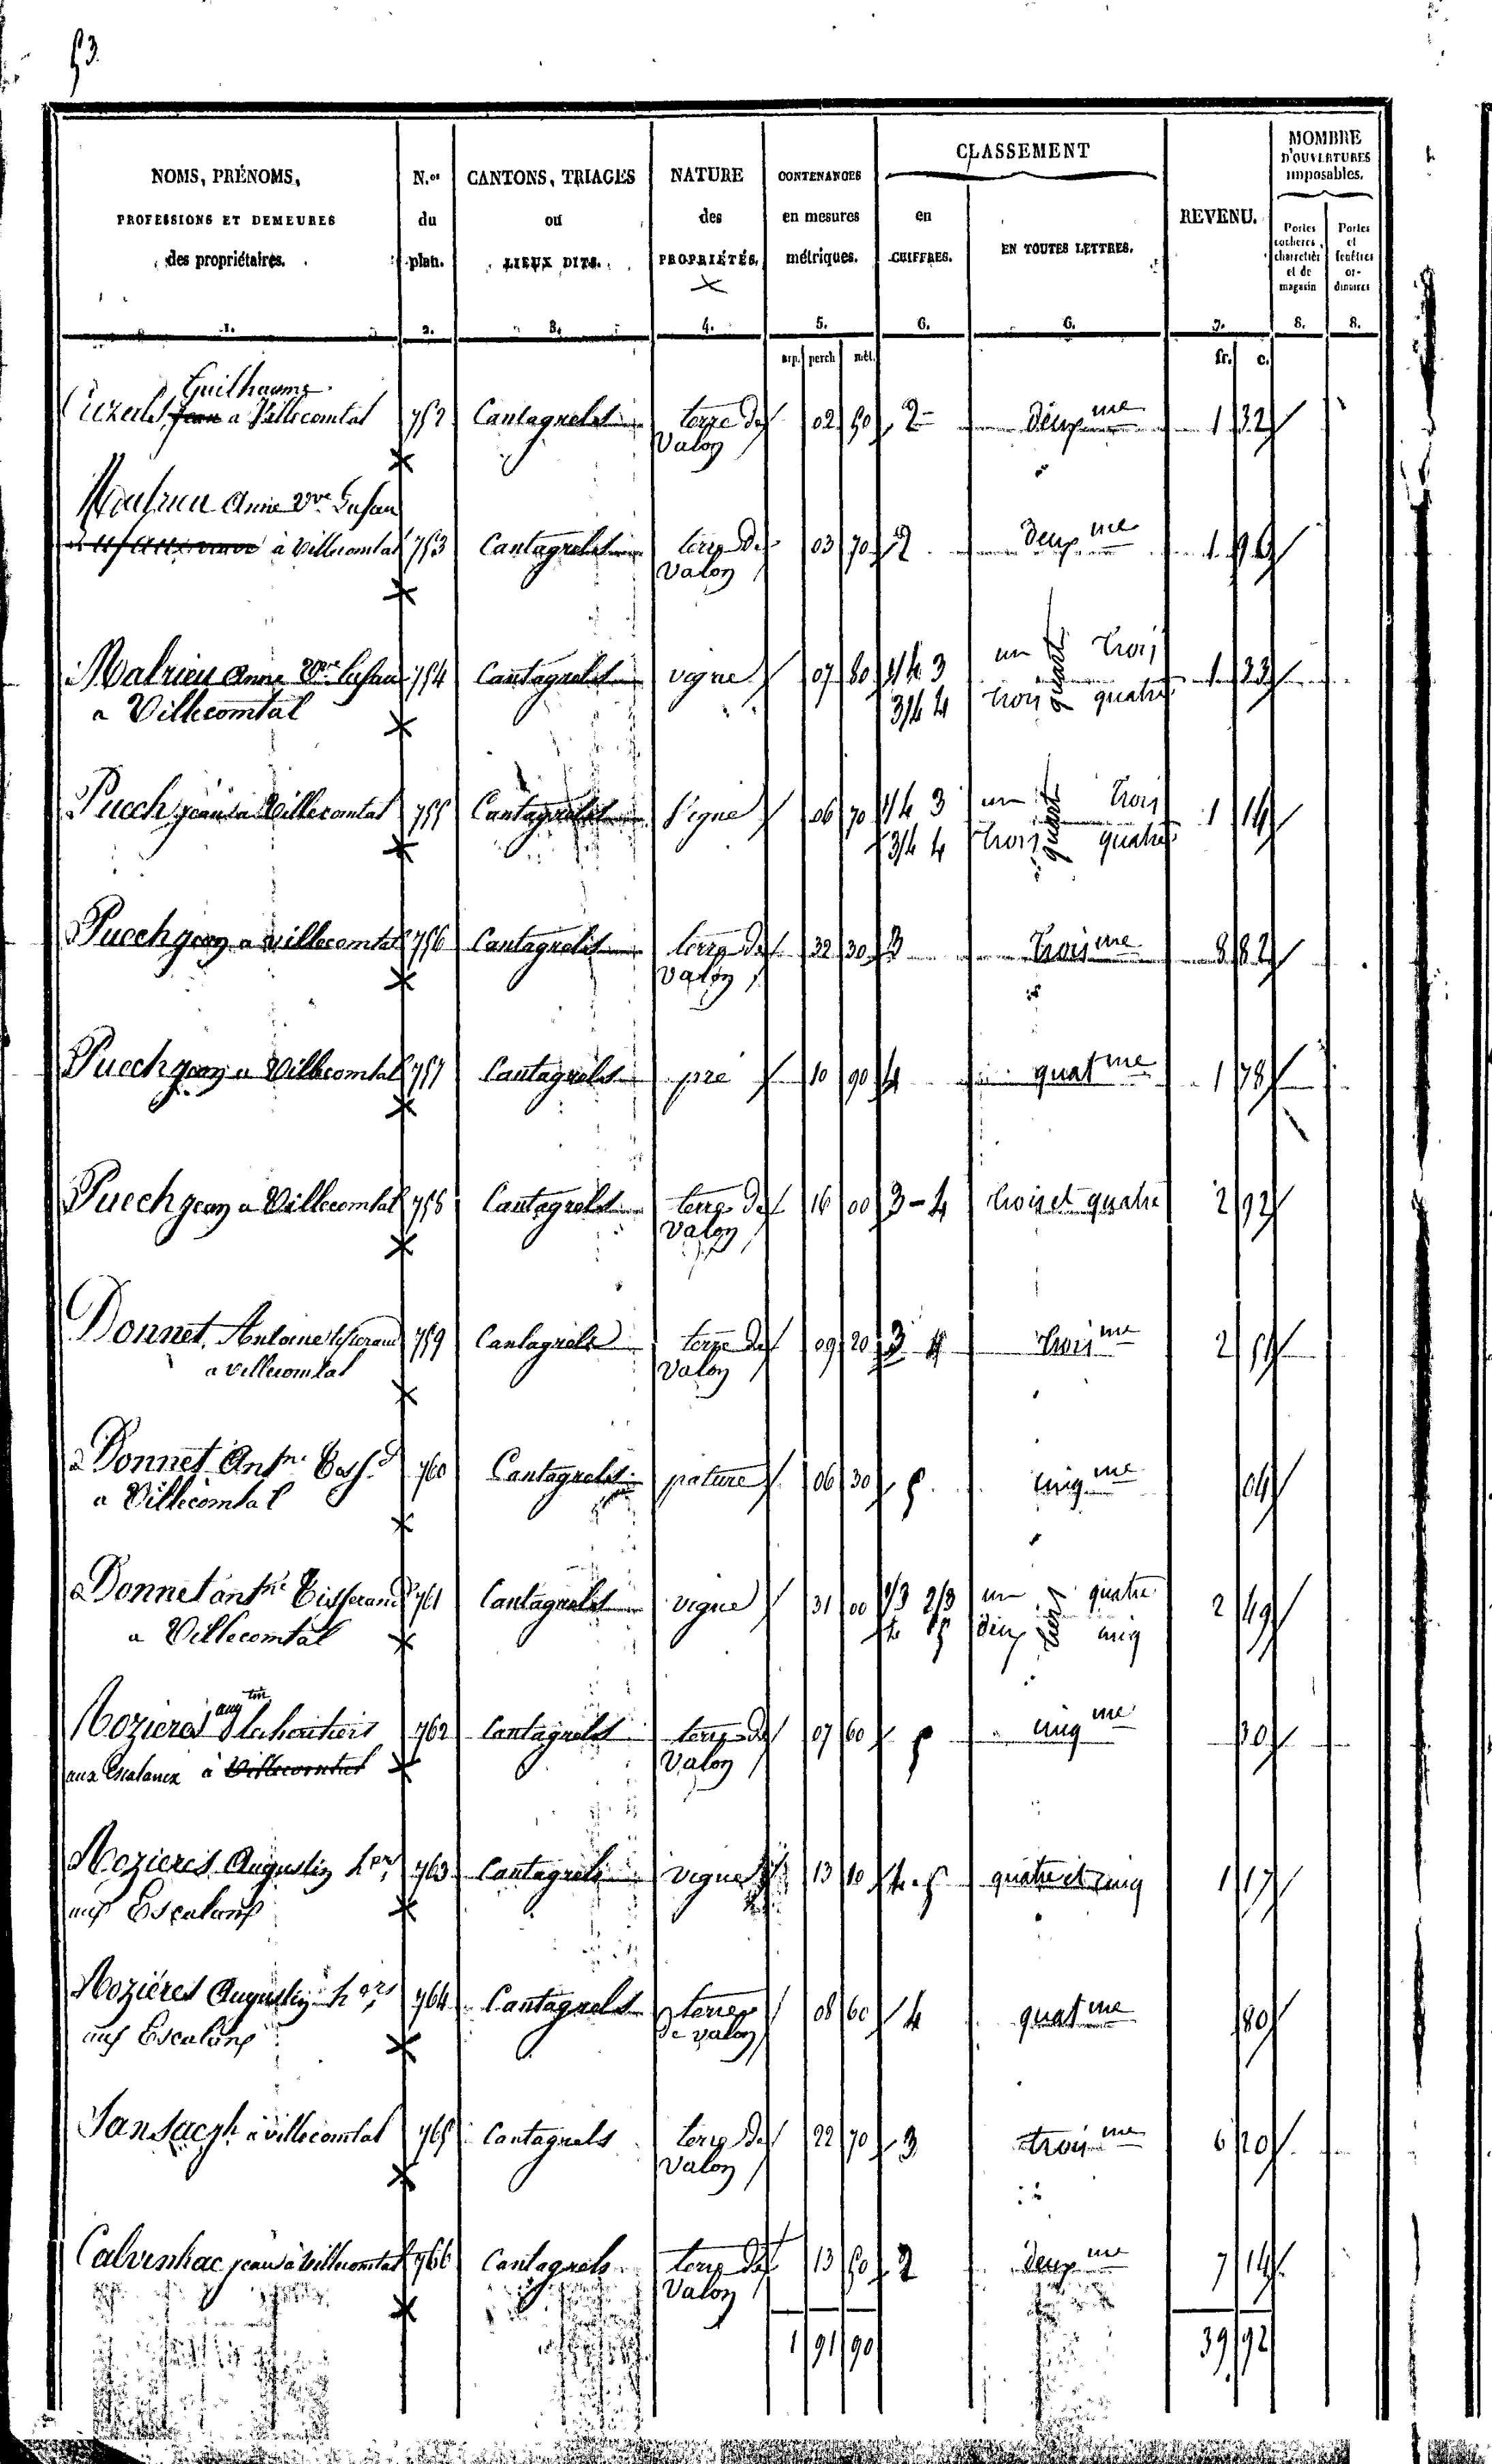 53.
NOMS, PRÉNOMS, PROFESSIONS ET DEMEURES des propriétaires. 1.
N.os du plan. 2.
CANTONS, TRIAGES ou LIEUX DITS. 3.
NATURE des PROPRIÉTÉS. 4.
CONTENANCES en mesures métriques. 5.
CLASSEMENT
en CHIFFRES. 6.
EN TOUTES LETTRES. 6.
REVENU. 7.
NOMBRE D'OUVERTURES imposables.
Portes cochères, charretièr et de magasin 8.
Portes et fenêtres ordinaires 8.
arp. perch mèt. fr. c.
Guilhaume
Jean a Villecomtal 752 Cantagrels terre de 02 50 2 deuxme 1 32
Valon
Anne Vve
à Villecomtal 753 Cantagrels terre de 03 70 2 deuxme 1 96
Valon
Malrieu Anne Vve 754 Cantagrels vigne 07 80 1/4 3 un quart trois 1 33
a Villecomtal 3/4 4 trois quatre
Puech jean a Villecomtal 755 Cantagrels Vigne 06 70 1/4 3 un quart trois 1 14
3/4 4 trois quatre
Puech jean a villecomtal 756 Cantagrels terre de 32 30 3 troisme 8 82
Valon
Puech jean a Villecomtal 757 Cantagrels pré 10 90 4 quatme 1 78
Puech jean a Villecomtal 758 Cantagrels terre de 16 00 3-4 trois et quatre 2 92
Valon
Donnet Antoine tisserand 759 Cantagrels terre de 09 20 3 troisme 2 51
a villecomtal Valon
Donnet Antne 760 Cantagrels pature 06 30 5 cinqme 04
a Villecomtal
Donnet antne Tisserand 761 Cantagrels vigne 31 00 1/3 2/3 un tiers quatre 2 49
a Villecomtal 4 5 deux cinq
augtin
Mozieres les heritiers 762 Cantagrels terre de 07 60 5 cinqme 30
aux Escalanx à Villecomtal Valon
Mozieres Augustin hers 763 Cantagrels vigne 13 10 4-5 quatre et cinq 1 17
aux Escalans
Moziéres Augustin hers 764 Cantagrels terre 08 60 4 quatme 80
aux Escalans de valon
à villecomtal 765 Cantagrels terre de 22 70 3 troisme 6 20
Valon
Calvinhac jean à Villecomtal 766 Cantagrels terre de 13 50 2 deuxme 7 14
Valon
1 91 90 39 92